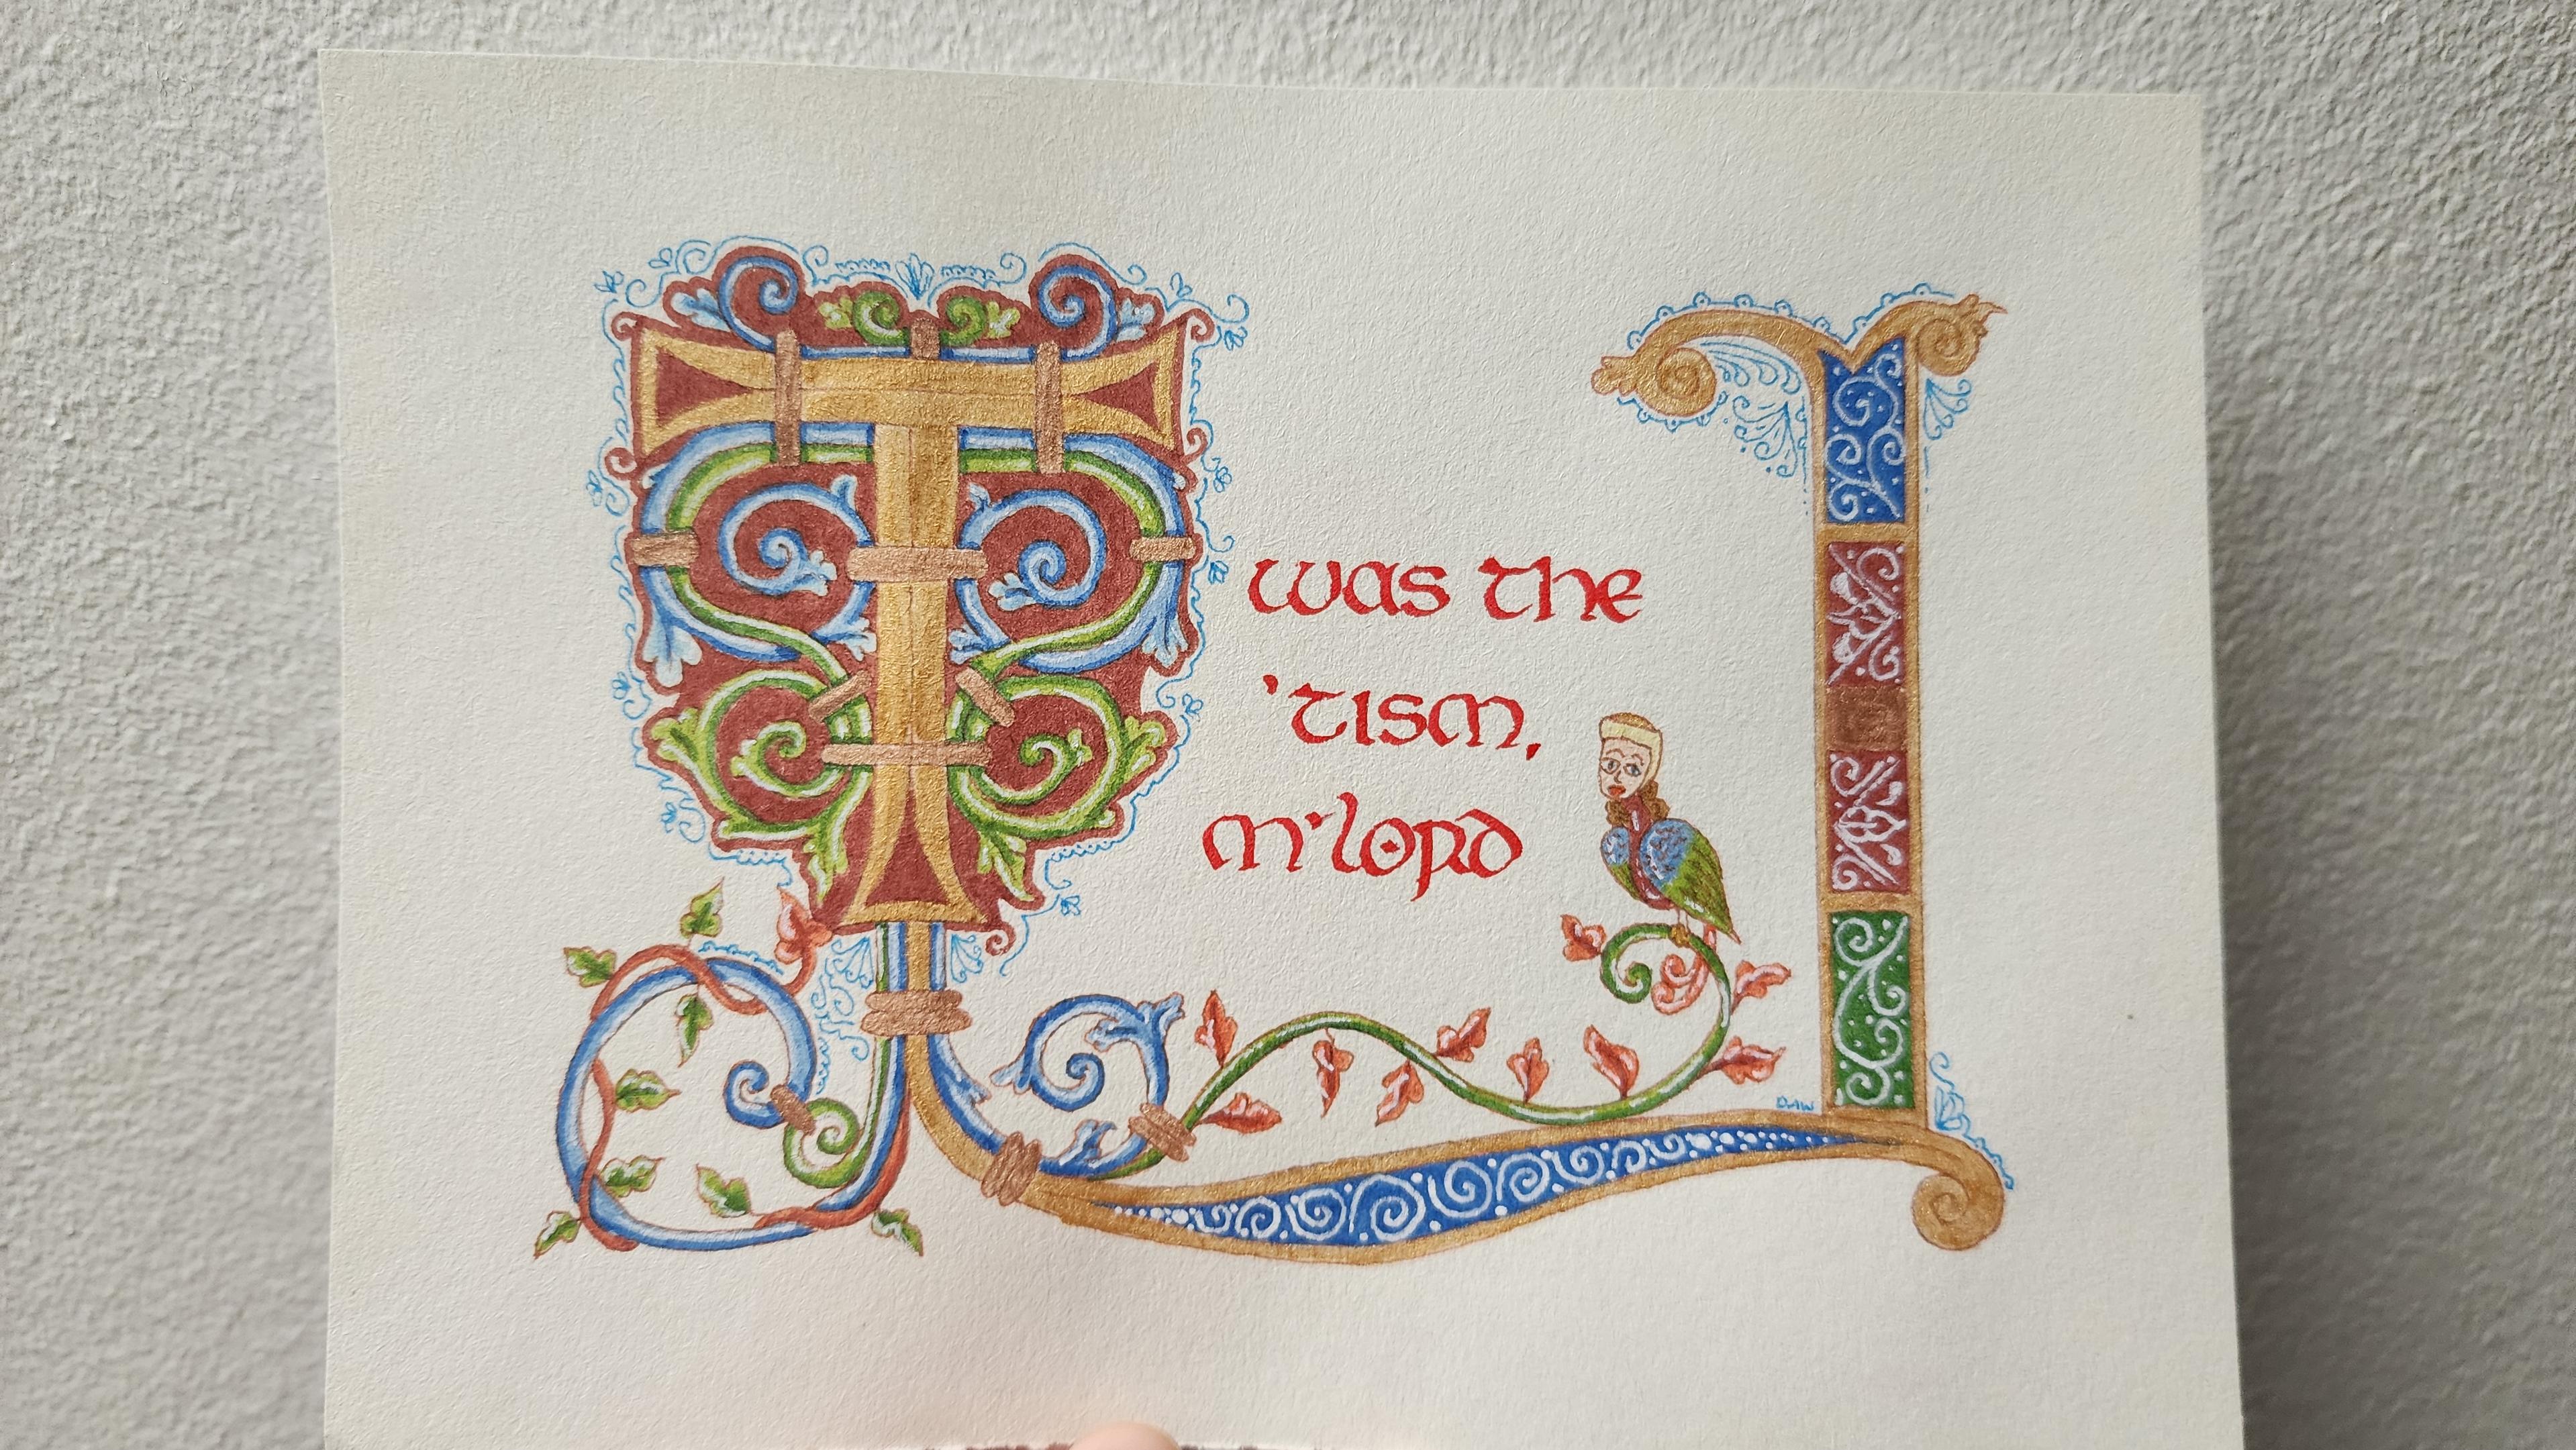 T was the
'tism,
m'lord
DAW